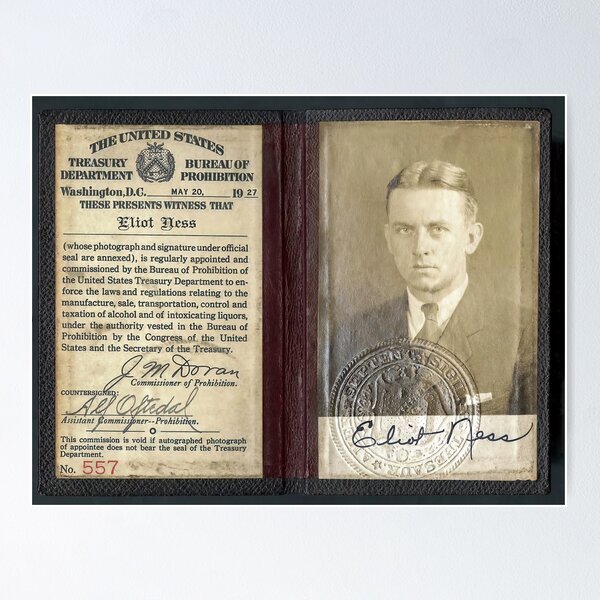 THE UNITED STATES
TREASURY DEPARTMENT
BUREAU OF PROHIBITION
Washington, D.C. MAY 20, 1927
THESE PRESENTS WITNESS THAT
Eliot Ness
(whose photograph and signature under official
seal are annexed), is regularly appointed and
commissioned by the Bureau of Prohibition of
the United States Treasury Department to en-
force the laws and regulations relating to the
manufacture, sale, transportation, control and
taxation of alcohol and of intoxicating liquors,
under the authority vested in the Bureau of
Prohibition by the Congress of the United
States and the Secretary of the Treasury.
J M Doran
Commissioner of Prohibition.
COUNTERSIGNED:
Alf Oftedal
Assistant Commissioner--Prohibition.
This commission is void if autographed photograph
of appointee does not bear the seal of the Treasury
Department.
No. 557
Eliot Ness